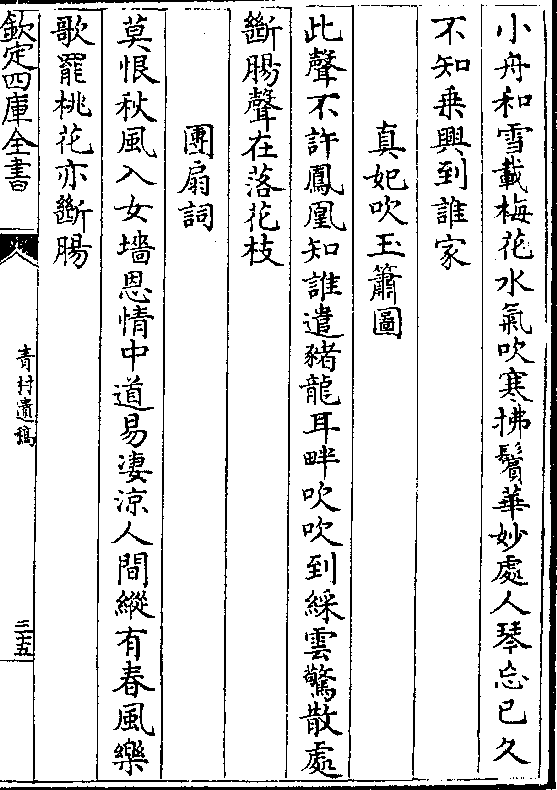 小舟和雪載梅花水氣吹寒拂鬢華妙處人琴忘已久
不知乗興到誰家
真妃吹玉簫圖
此聲不許鳳凰知誰遣豬龍耳畔吹吹到綵雲驚散處
斷腸聲在落花枝
團扇詞
莫恨秋風入女墻恩情中道易淒涼人間縱有春風樂
歌罷桃花亦斷腸
欽定四庫全書
青村遺稿
三十五